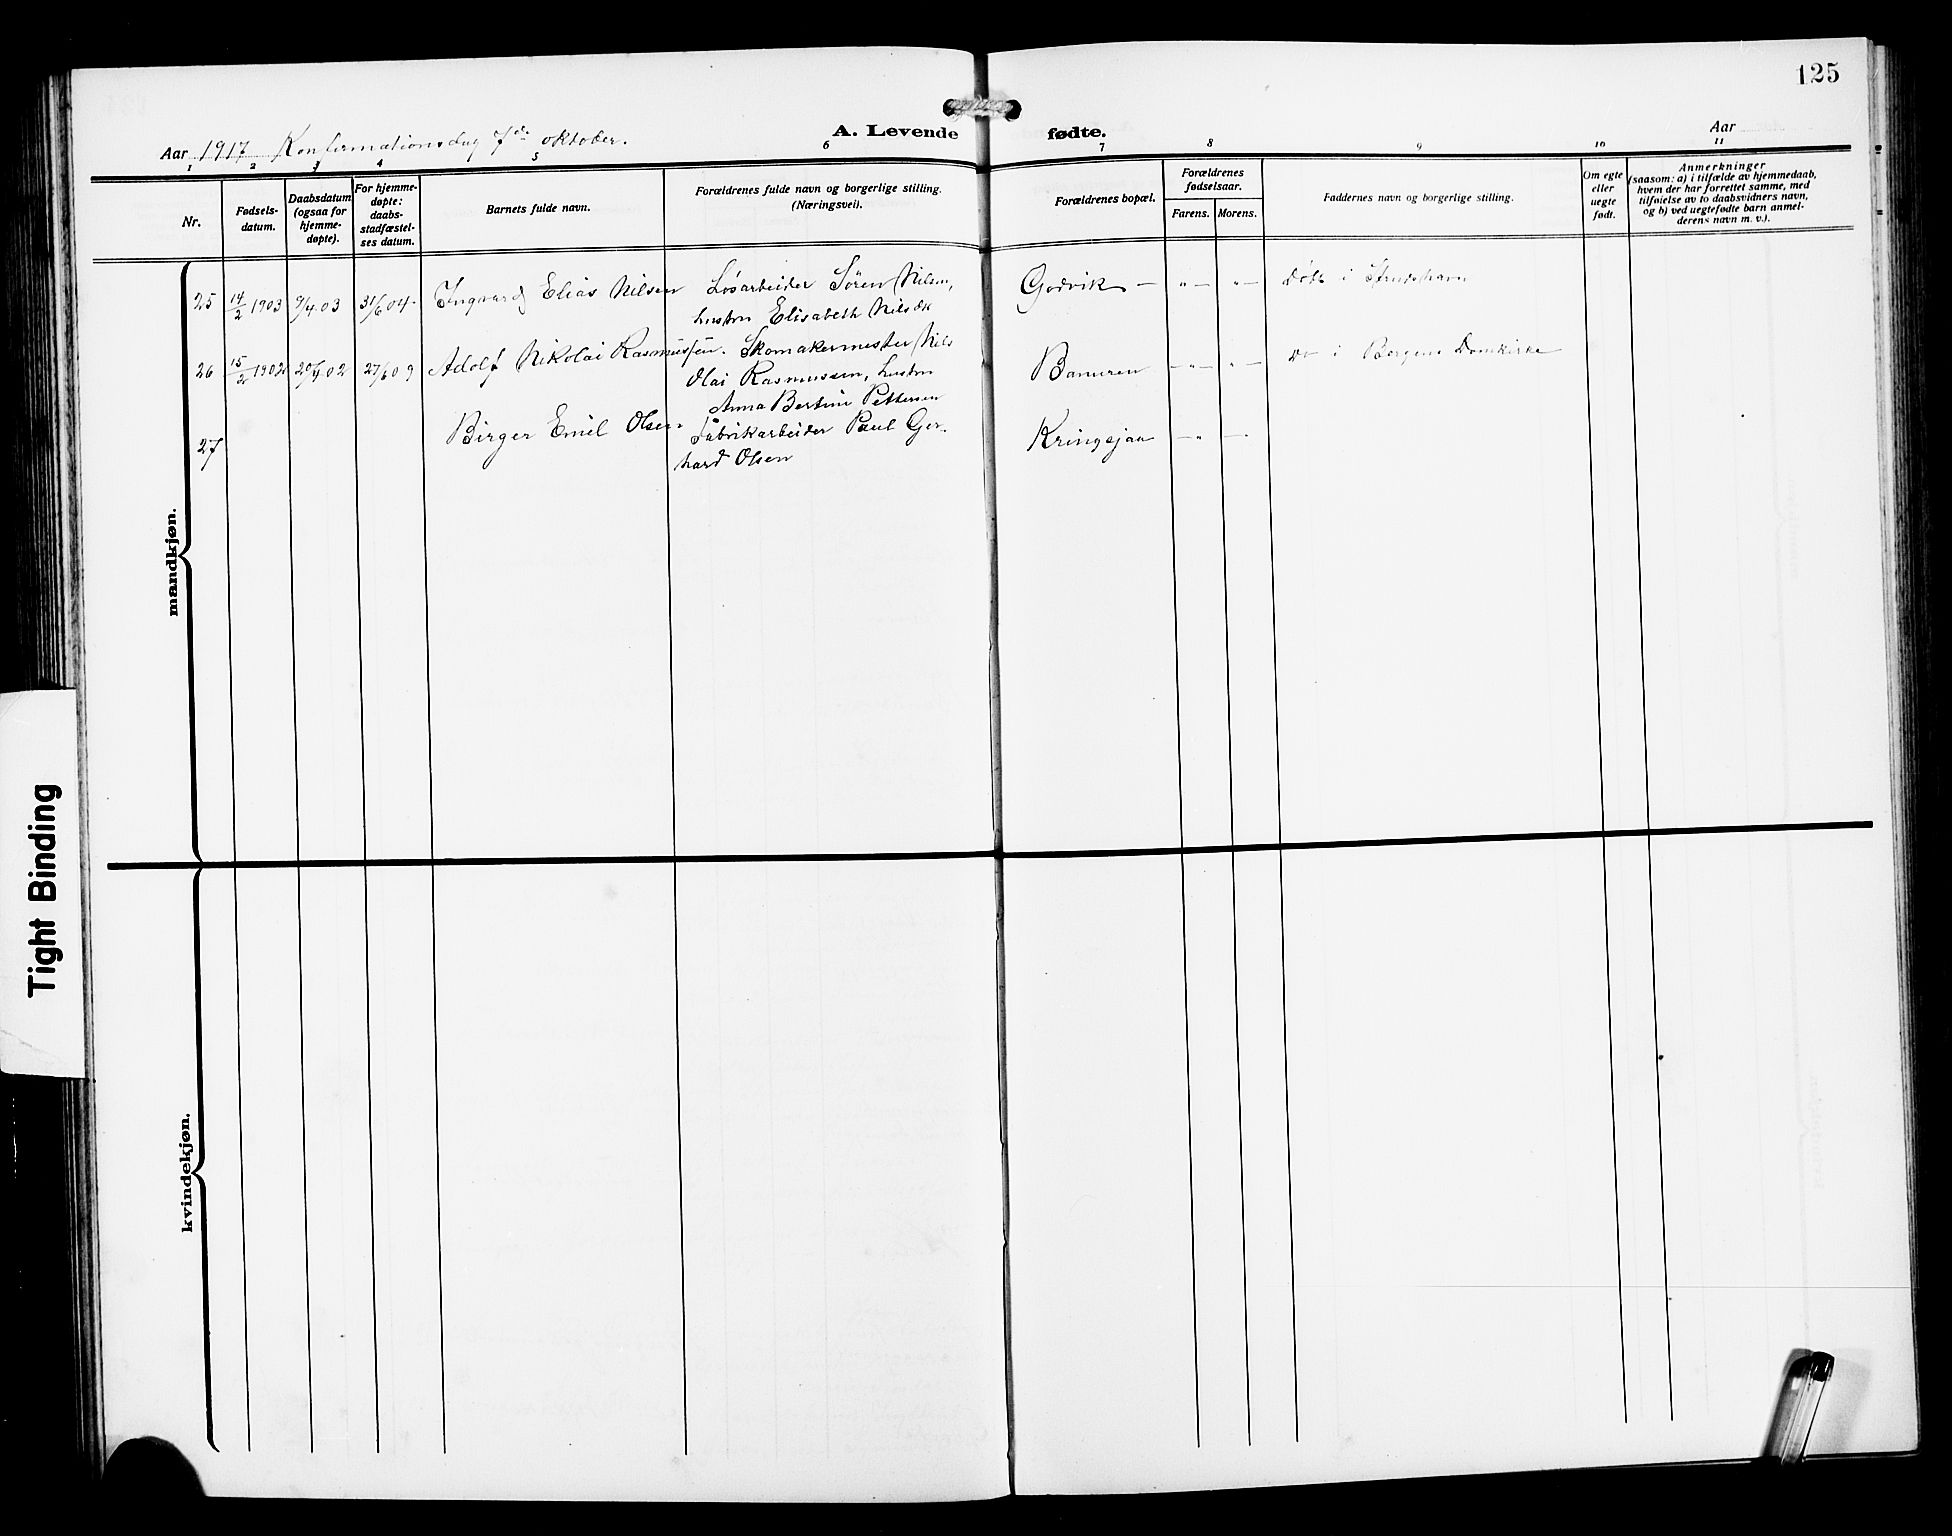 125
Aar 1917 Konfirmationsdag 7de oktober.
A. Levende fødte.
Aar
1 2 3 4 5 6 7 8 9 10 11
Nr.
Fødsels-
datum.
Daabsdatum
(ogsaa for
hjemme-
døpte).
For hjemme-
døpte:
daabs-
stadfæstel-
ses datum.
Barnets fulde navn.
Forældrenes fulde navn og borgerlige stilling.
(Næringsvei).
Forældrenes bopæl.
Forældrenes
fødselsaar.
Farens. Morens.
Faddernes navn og borgerlige stilling.
Om egte
eller
uegte
født.
Anmerkninger
(saasom: a) i tilfælde av hjemmedaab,
hvem der har forrettet samme, med
tilføielse av to daabsvidners navn,
og b) ved uegtefødte barn anmel-
derens navn m. v.).
mandkjøn.
25 14/2 1903 9/4 03 31/6 04 Ingvard Elias Nilsen Løsarbeider Sören Nilsen, Godvik – „ – „ – Døbt i
hustru Elisabeth
26 15/2 1902 20/4 02 27/6 09 Adolf Nikolai Rasmussen. Skomakermester Nils Banuren – „ – „ – Do i Bergens Domkirke
Olai Rasmussen, hustru
Anna Bertine Pettersen
27 Birger Emil Olsen Fabrikarbeider Paul Ger- Kringsjaa – „ –
hard Olsen
kvindekjøn.
Tight Binding